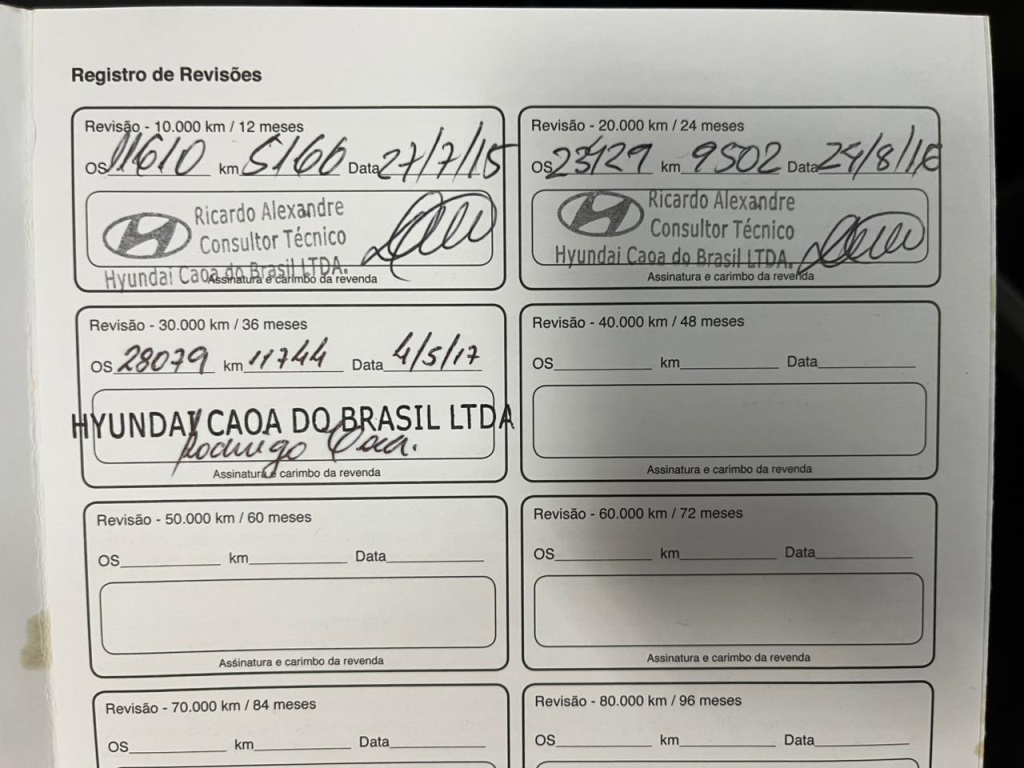 Registro de Revisões
Revisão - 10.000 km / 12 meses
OS 11610 km 5166 Data 27/7/15
Ricardo Alexandre
Consultor Técnico
Hyundai Caoa do Brasil LTDA.
Assinatura e carimbo da revenda
Revisão - 20.000 km / 24 meses
OS 23129 km 9502 Data 24/8/16
Ricardo Alexandre
Consultor Técnico
Hyundai Caoa do Brasil LTDA.
Assinatura e carimbo da revenda
Revisão - 30.000 km / 36 meses
OS 28079 km 11744 Data 4/5/17
HYUNDAI CAOA DO BRASIL LTDA
Rodrigo
Assinatura e carimbo da revenda
Revisão - 40.000 km / 48 meses
OS km Data
Assinatura e carimbo da revenda
Revisão - 50.000 km / 60 meses
OS km Data
Assinatura e carimbo da revenda
Revisão - 60.000 km / 72 meses
OS km Data
Assinatura e carimbo da revenda
Revisão - 70.000 km / 84 meses
OS km Data
Revisão - 80.000 km / 96 meses
OS km Data